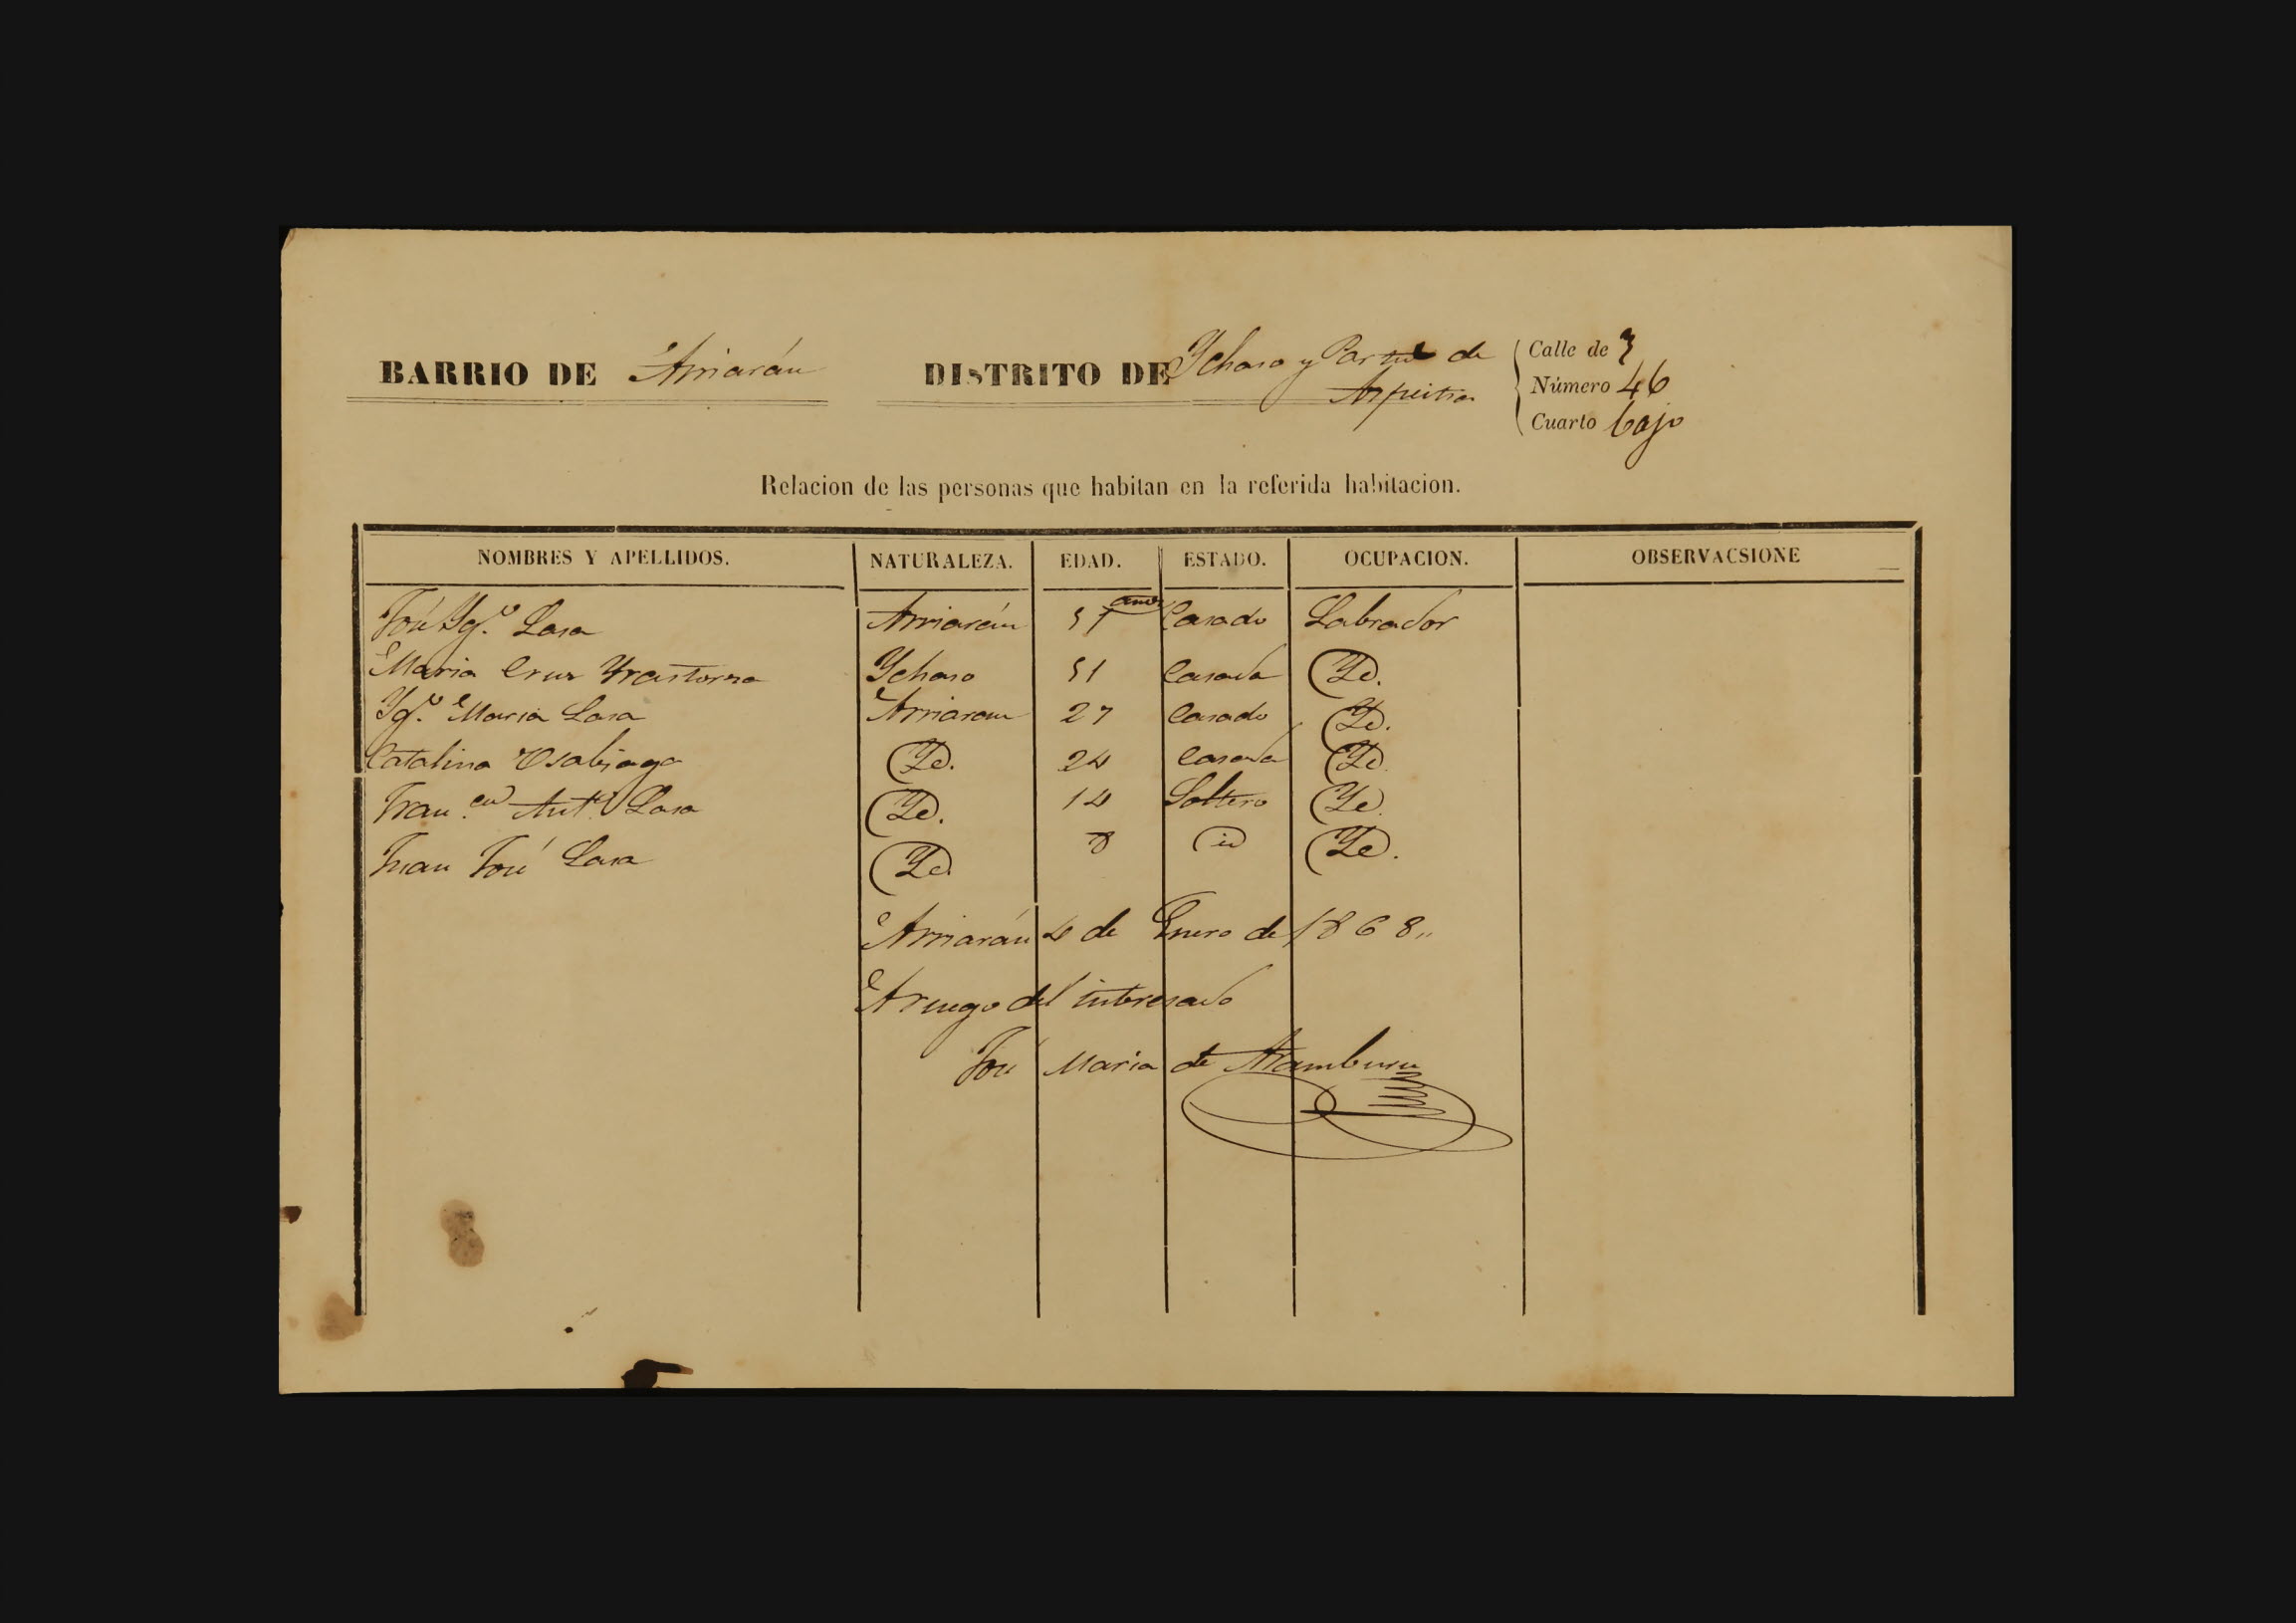 BARRIO DE Arriarán DISTRITO DE Ychaso y Partid de
Azpeitia
Calle de 3
Número 46
Cuarto bajo
Relacion de las personas que habitan en la referida habitacion.
NOMBRES Y APELLIDOS. NATURALEZA. EDAD. ESTADO. OCUPACION. OBSERVACSIONE
José Ygº. Lasa Arriarán 57 años Casado Labrador
Maria Cruz Yrastorza Ychaso 51 Casada Yd.
Ygº. Maria Lasa Arriaran 27 Casado Yd.
Catalina Osabiaga Yd. 24 Casada Yd.
Franco. Antº Lasa Yd. 14 Soltero Yd.
Juan José Lasa Yd. 8 id Yd.
Arriarán 4 de Enero de 1868,,
A ruego del interesado
José Maria de Aramburu